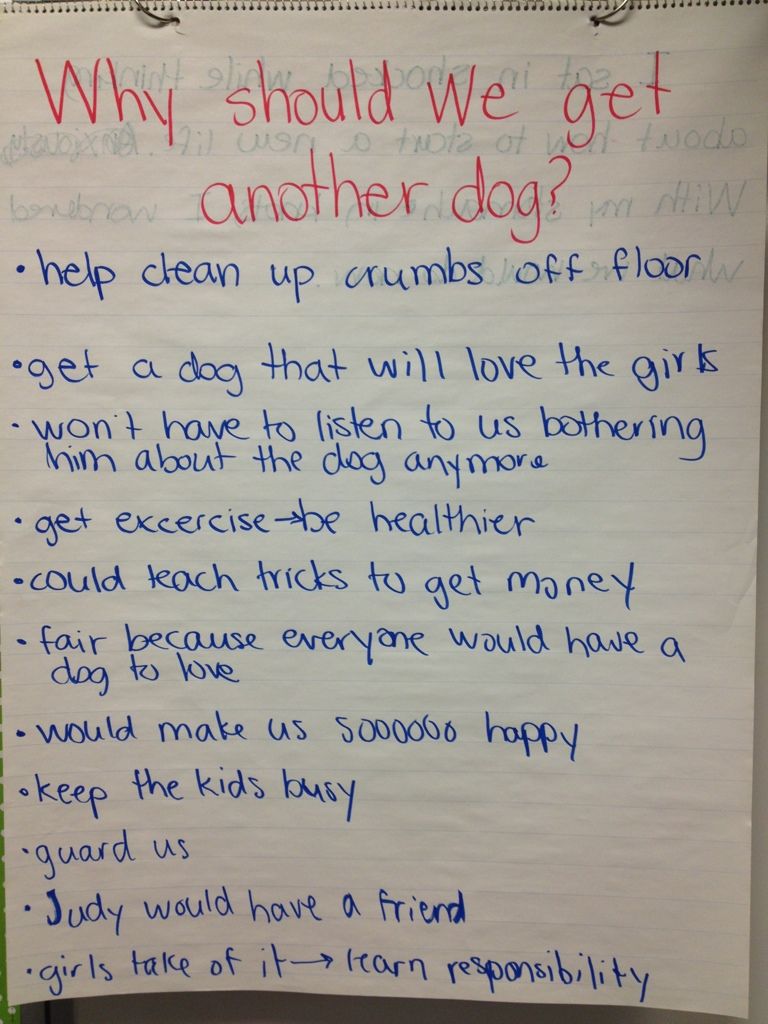 Why should we get
another dog?
• help clean up crumbs off floor
• get a dog that will love the girls
• won't have to listen to us bothering
him about the dog anymore
• get excercise → be healthier
• could teach tricks to get money
• fair because everyone would have a
dog to love
• would make us sooooooo happy
• keep the kids busy
• guard us
• Judy would have a friend
• girls take of it → learn responsibility